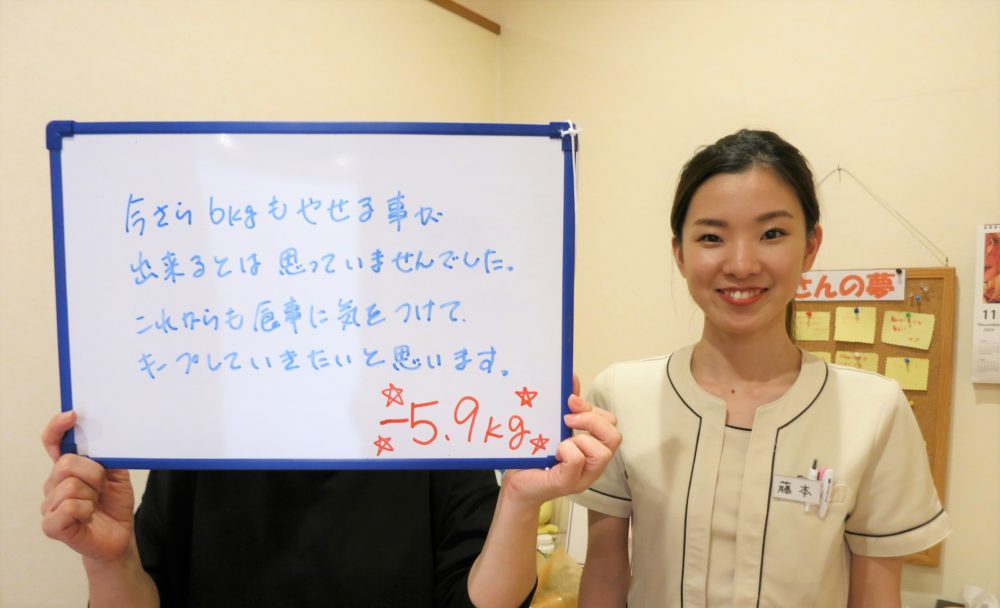 今さら6kgもやせる事が
出来るとは思っていませんでした。
これからも食事に気をつけて、
キープしていきたいと思います。
-5.9kg
さんの夢
藤本
11